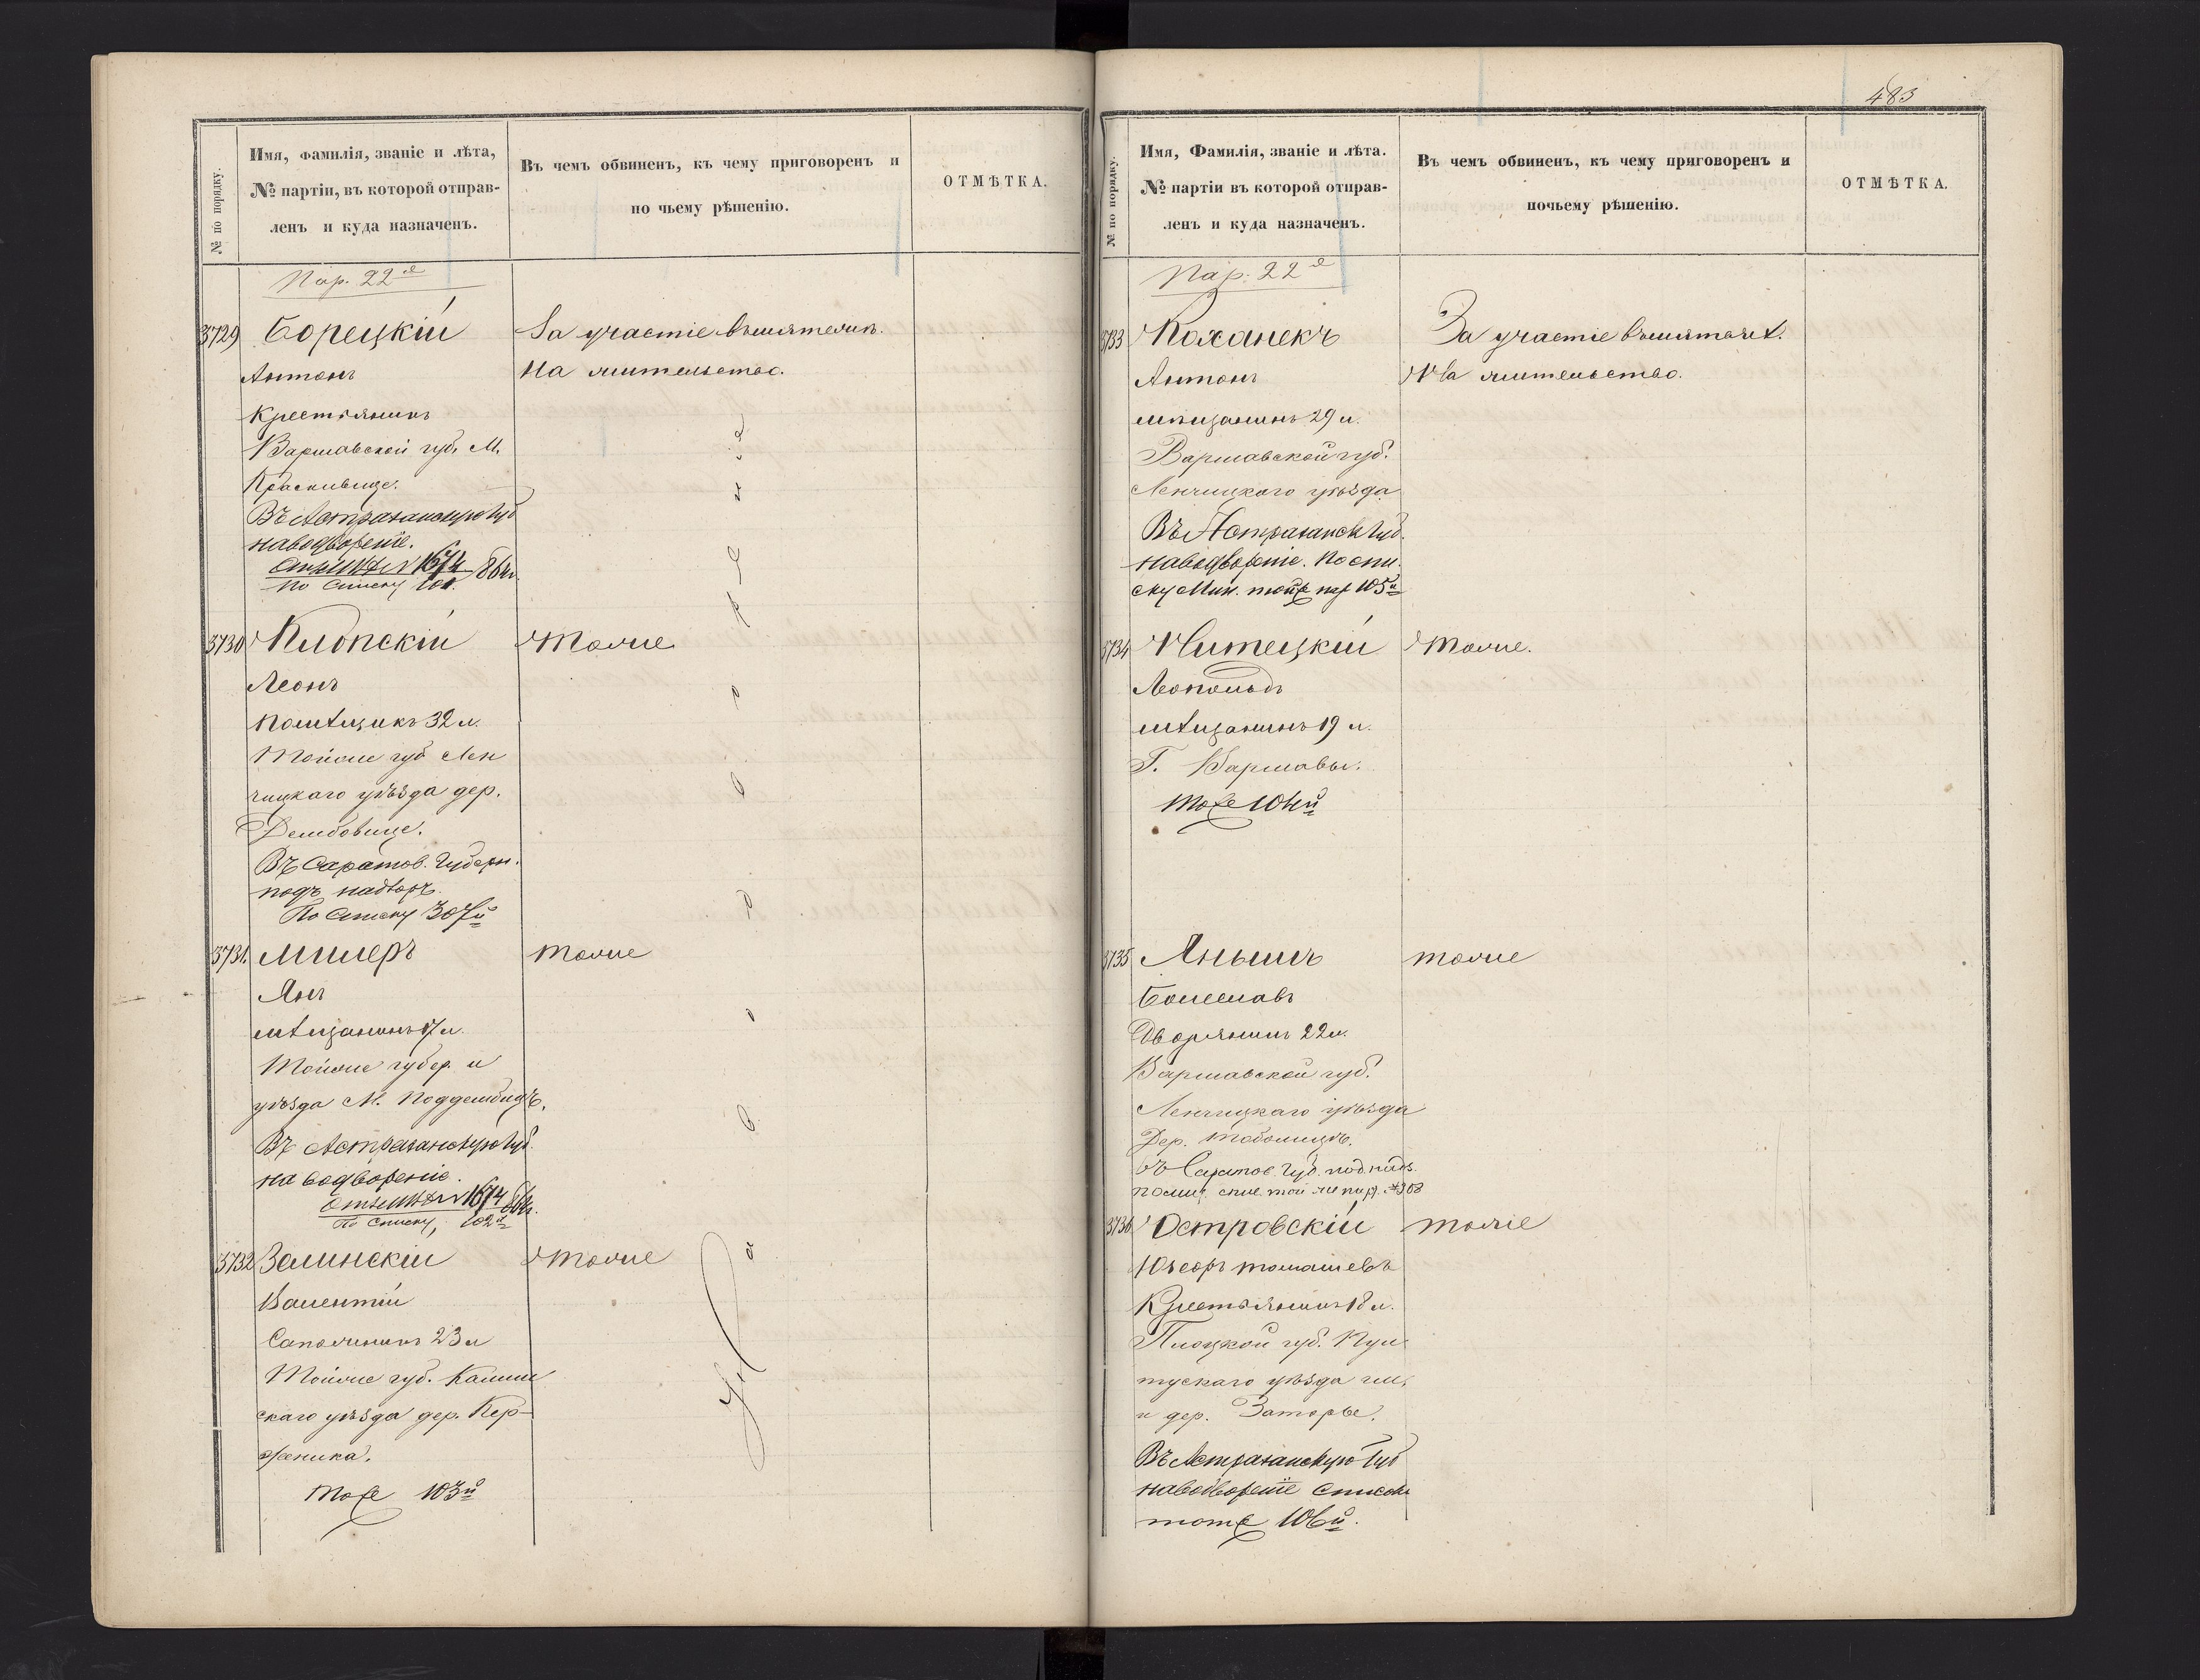 483
№ по порядку.
Имя, фамилія, званіе и лѣта,
№ партіи, въ которой отправ-
ленъ и куда назначенъ.
Въ чемъ обвиненъ, къ чему приговоренъ и
по чьему рѣшенію.
ОТМѢТКА.
Пар. 22я
3729
Борецкій
За участіе въ мятежѣ.
Антонъ
На жительство.
Крестьянинъ
Варшавской губ. М.
Въ Астраханскую Губ
на водвореніе.
№ 1674/86
По списку 101.
3730
Клопскій
Тоже
Леонъ
помѣщикъ 32 л.
Тойже губ Лен
чицкаго уѣзда дер.
Дембовице.
Въ Саратов. Губерн.
подъ надзоръ.
По списку 307й
3731.
Милеръ
тоже
Янъ
мѣщанинъ 17 л.
Тойже губер. и
уѣзда М. Поддембицѣ.
Въ Астраханскую Губ.
на водвореніе.
№ 1674
По списку, 102й
3732
Зелинскій
Тоже
Валентій
23 л
Тойже губ. Калиш
скаго уѣзда дер. Кер-
женика.
Тоже 103й
№ по порядку.
Имя, Фамилія, званіе и лѣта.
№ партіи въ которой отправ-
ленъ и куда назначенъ.
Въ чемъ обвиненъ, къ чему приговоренъ и
почьему рѣшенію.
ОТМѢТКА.
Пар. 22я
3733
Коханекъ
За участіе въ мятежѣ.
Антонъ
На жительство.
мѣщанинъ 29 л.
Варшавской губ.
Ленчицкаго уѣзда
Въ Астраханск Губ.
на водвореніе. По спи
ску Мин. тойже пар 105й
3734
Нитецкій
Тоже.
Леопольдъ
мѣщанинъ 19 л.
Г. Варшавы.
Тоже 104й
3735
Янышъ
тоже
Болеславъ
Дворянинъ 22 л.
Варшавской губ.
Ленчицкаго уѣзда
Дер.
въ Саратов. Губ. под надз.
полиц. спис. той же пар. № 308
3736
Островскій
тоже
Юзефъ Томашевъ
Крестьянинъ 18 л.
Плоцкой губ. Пул
тускаго уѣзда гм.
и дер. Заторье.
Въ Астраханскую Губ
на водвореніе списокъ
тотже 106й.